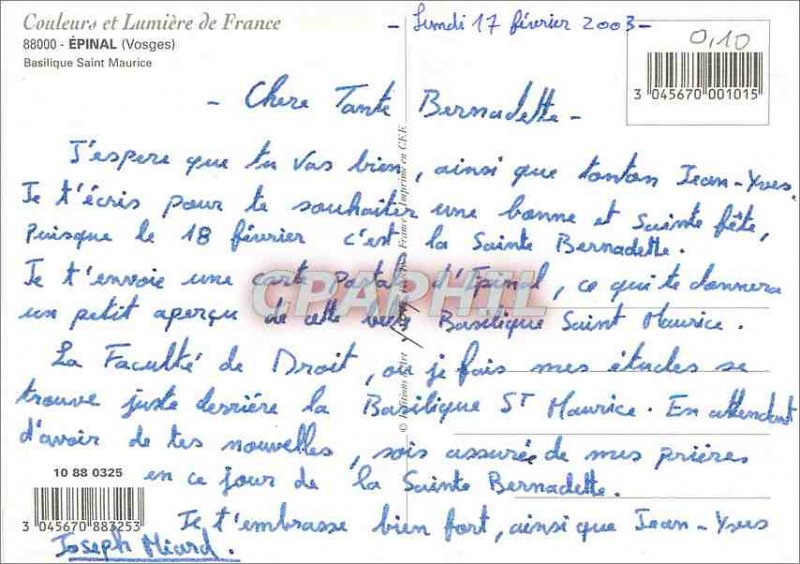 Couleurs et Lumière de France
88000 - ÉPINAL (Vosges)
Basilique Saint Maurice
- Lundi 17 février 2003 -
0,10
3 045670 001015
- Chere Tante Bernadette -
J'espere que tu vas bien, ainsi que tonton Jean-Yves.
Je t'écris pour te souhaiter une bonne et sainte fête,
Puisque le 18 février c'est la Sainte Bernadette.
Je t'envoie une carte postale d'Epinal, ce qui te donnera
un petit aperçu de cette Basilique Saint Maurice.
La Faculté de Droit, ou je fais mes études se
trouve juste derrière la Basilique ST Maurice. En attendant
d'avoir de tes nouvelles, sois assurée de mes prières
en ce jour de la Sainte Bernadette.
Je t'embrasse bien fort, ainsi que Jean-Yves
Joseph Miard.
10 88 0325
3 045670 883253
France - Imprimé en C.E.E.
CPAPHIL